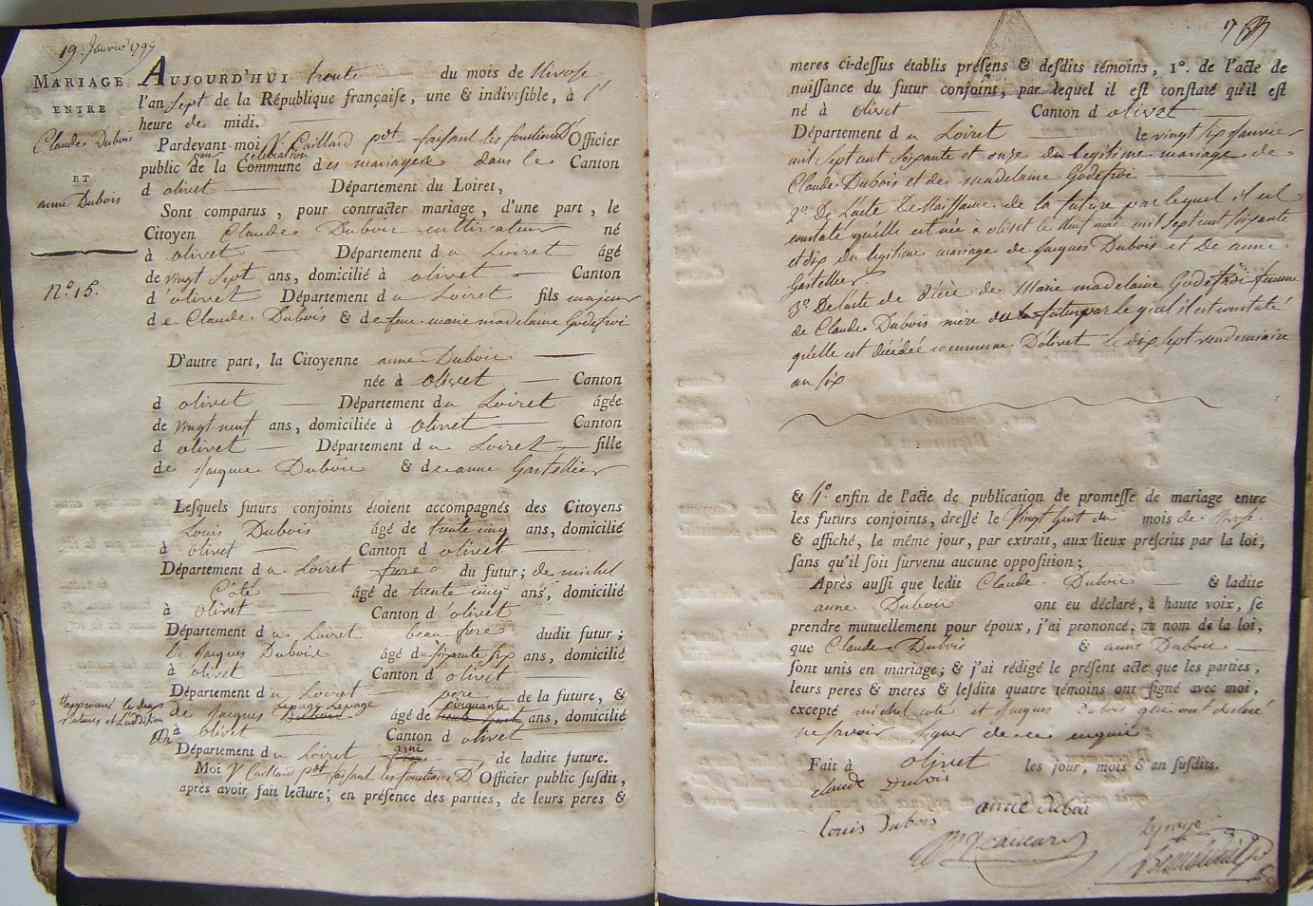 19 Janvier 1799
MARIAGE
ENTRE
Claude Dubois
ET
anne Dubois
N.º 15.
AUJOURD'HUI trente du mois de Nivose
l'an Sept de la République françaiſe, une & indiviſible, à l'
heure de midi.
Pardevant moi V. Caillard pdt faisant les fonctions D'Officier
public de la Commune pour celebration des mariages dans le Canton
d olivet Département du Loiret,
Sont comparus, pour contracter mariage, d'une part, le
Citoyen Claude Dubois cultivateur né
à olivet Département du Loiret âgé
de vingt sept ans, domicilié à olivet Canton
d'olivet Département du Loiret fils majeur
de Claude Dubois & de feue marie madelaine Godefroi
D'autre part, la Citoyenne anne Dubois
née à olivet Canton
d olivet Département du Loiret âgée
de vingt neuf ans, domiciliée à olivet Canton
d olivet Département du Loiret fille
de Jacques Dubois & de anne Gastellier
Leſquels futurs conjoints étoient accompagnés des Citoyens
Louis Dubois âgé de trente cinq ans, domicilié
à olivet Canton d olivet
Département du Loiret frere du futur; de michel
Coté âgé de trente cinq ans, domicilié
à olivet Canton d'olivet
Département du Loiret beau frere dudit futur;
de Jacques Dubois âgé de soixante six ans, domicilié
à olivet Canton d olivet
Département du Loiret pere de la future, &
de Jacques Lepage Lepage âgé de cinquante ans, domicilié
à olivet Canton d olivet
Département du Loiret ami de ladite future.
Moi V Caillard pdt faisant les fonctions D'Officier public ſuſdit,
après avoir fait lecture; en préſence des parties, de leurs peres &
17
meres ci-deſſus établis préſens & deſdits témoins, 1º. de l'acte de
naiſſance du futur conjoins, par lequel il eſt conſtaté qu'il eſt
né à olivet Canton d olivet
Département du Loiret le vingt six Janvier
mil sept cent soixante et onze du legitime mariage de
Claude Dubois et de madelaine Godefroi
2º De L'acte De Naissance de la future par lequel il est
constaté qu'elle est née à olivet le neuf mai mil sept cent soixante
et dix du legitime mariage de Jacques Dubois et De anne
Gastellier
3º De l'acte de Décè de Marie madelaine Godefroi femme
de Claude Dubois mère du futur par le quel il est constaté
qu'elle est décédée commune D'olivet le dix sept vendemiaire
an six
& 4º. enfin de l'acte de publication de promeſſe de mariage entre
les futurs conjoints, dreſſé le Vingt huit du mois de
& affiché, le même jour, par extrait, aux lieux preſcrits par la loi,
ſans qu'il ſoit ſurvenu aucune oppoſition;
Après auſſi que ledit Claude Dubois & ladite
anne Dubois ont eu déclaré, à haute voix, ſe
prendre mutuellement pour époux, j'ai prononcé, au nom de la loi,
que Claude Dubois & anne Dubois
ſont unis en mariage; & j'ai rédigé le préſent acte que les parties,
leurs peres & meres & leſdits quatre témoins ont ſigné avec moi,
excepté michel coté et Jacques Dubois qui ont declaré
ne savoir signer de ce enquis.
Fait à olivet les jour, mois & an ſuſdits.
claude Dubois
anne dubois
Louis Dubois
Lepage